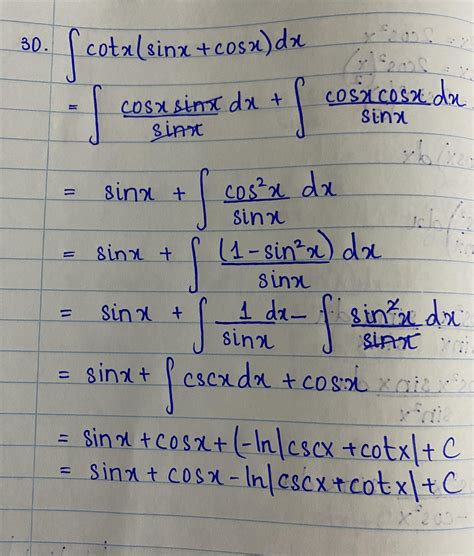 30. ∫ cotx(sinx+cosx)dx
= ∫ cosx sinx/sinx dx + ∫ cosxcosx/sinx dx
= sinx + ∫ cos²x/sinx dx
= sinx + ∫ (1-sin²x)/sinx dx
= sinx + ∫ 1/sinx dx - ∫ sin²x/sinx dx
= sinx + ∫ cscxdx + cosx
= sinx + cosx + (-ln|cscx + cotx| + C
= sinx + cosx - ln|cscx + cotx| + C